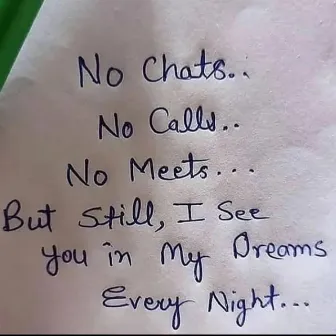 No Chats..
No Calls..
No Meets...
But Still, I See
you in My Dreams
Every Night...